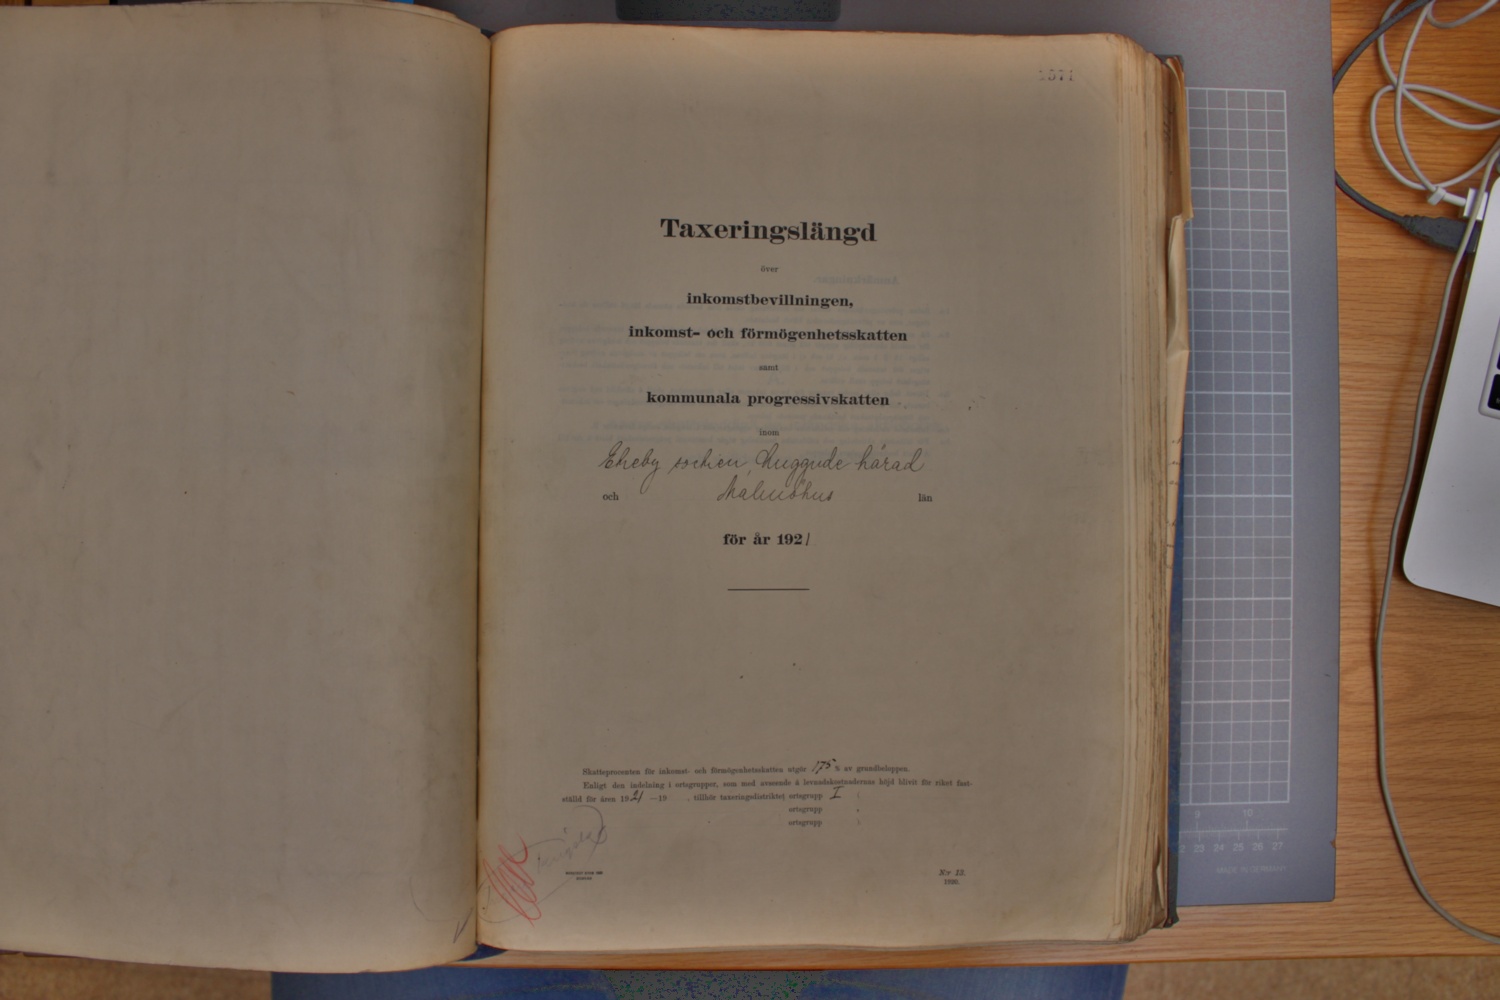 1571
Taxeringslängd
över
inkomstbevillningen,
inkomst- och förmögenhetsskatten
samt
kommunala progressivskatten
inom
Ekeby socken, Luggude härad
och Malmöhus län
för år 1921
Skatteprocenten för inkomst- och förmögenhetsskatten utgör 175 % av grundbeloppen.
Enligt den indelning i ortsgrupper, som med avseende å levnadskostnadernas höjd blivit för riket fast-
ställd för åren 1921 —19 , tillhör taxeringsdistriktet ortsgrupp I
ortsgrupp
ortsgrupp
N:r 12.
9 10
22 23 24 25 26 27
MADE IN GERMANY